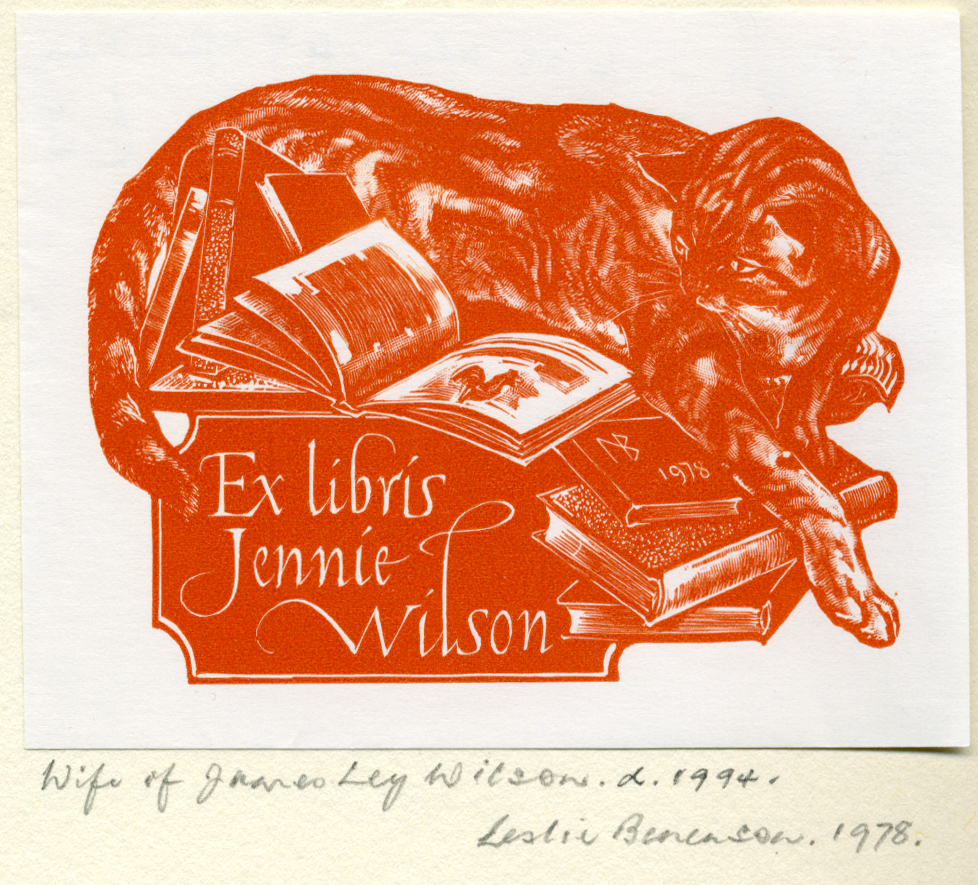 NB
1978
Ex libris
Jennie
Wilson
Wife of James Ley Wilson. d. 1994.
Leslie Benenson. 1978.